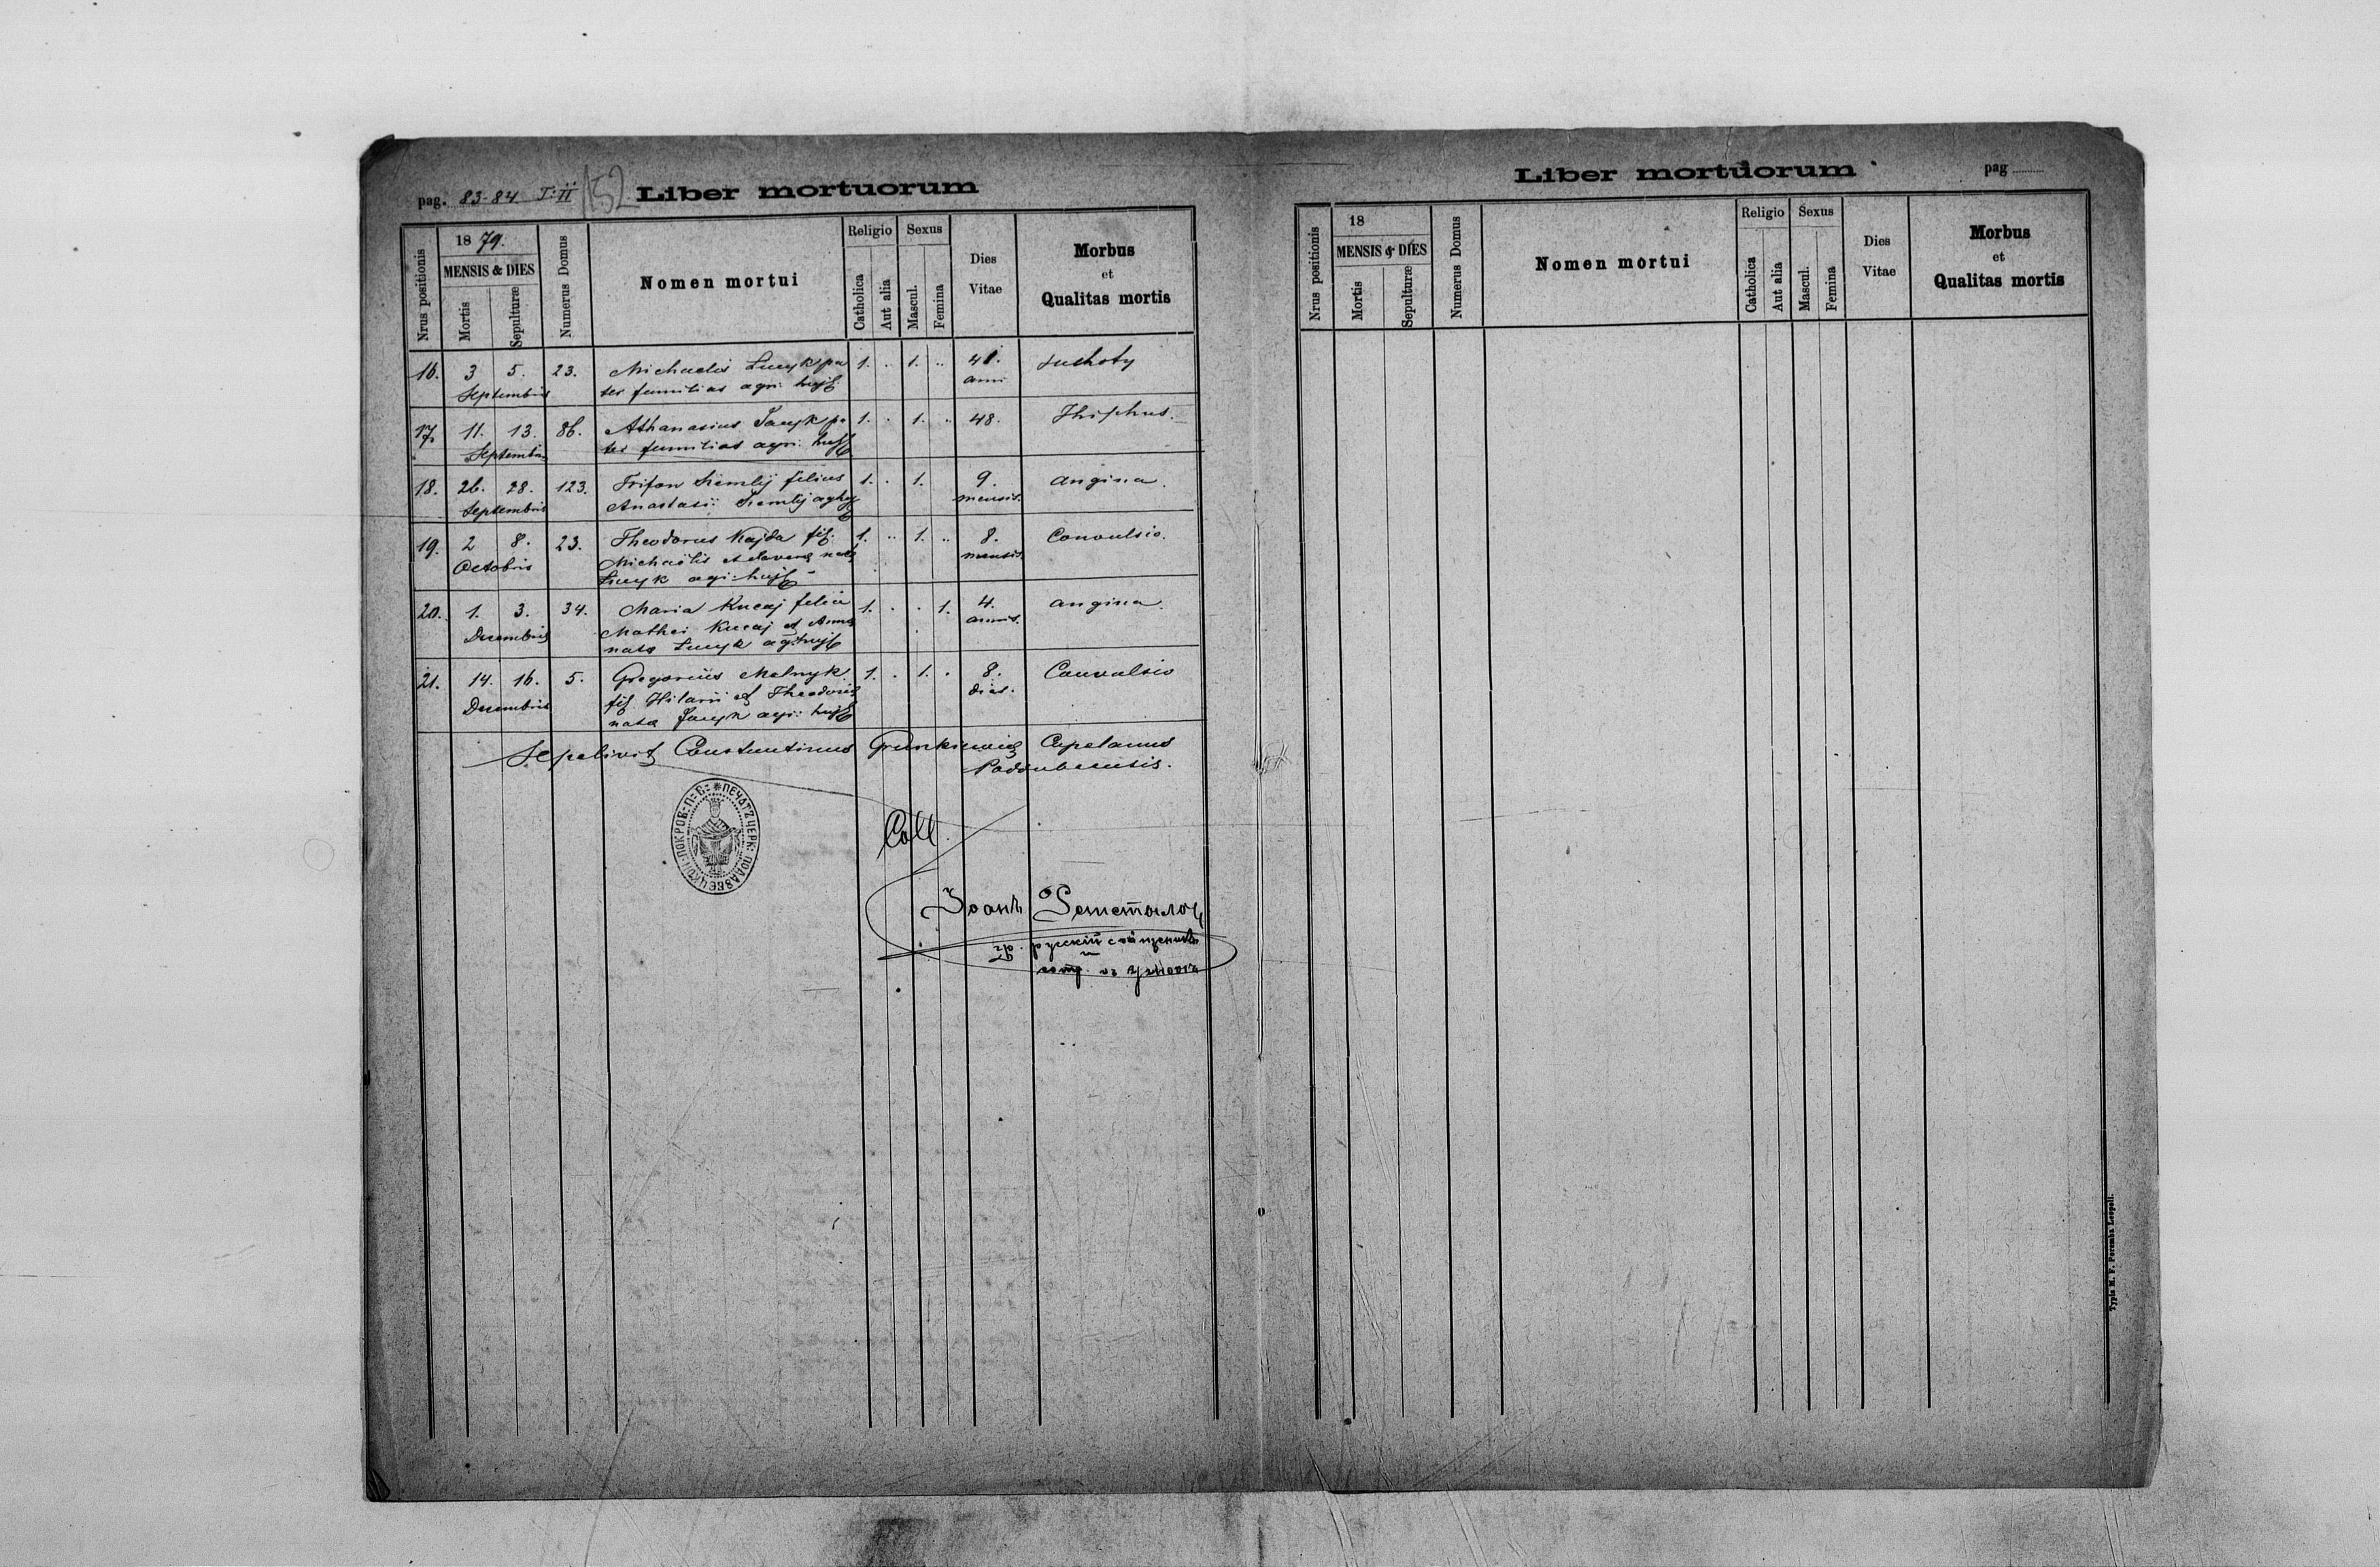 pag. 83-84 T. II 152 Liber mortuorum
Nrus positionis
18 79.
MENSIS & DIES
Mortis
Sepulturæ
Numerus Domus
Nomen mortui
Religio
Catholica
Aut alia
Sexus
Mascul.
Femina
Dies
Vitae
Morbus
et
Qualitas mortis
16. 3 5. 23. Michaelis Łucyk pa 1. 1. 41. suchoty
Septembris ter familias agri: hujs anni
17. 11. 13. 86. Athanasius pa 1. 1. 48. Thiphus.
Septembris ter familias agri: hujs
18. 26. 28. 123. Trifon Siemlij filius 1. 1. 9. angina.
Septembris Anastasii Siemlij mensis.
19. 2 8. 23. Theodorus Kajda fil. 1. 1. 8. Convulsio.
Octobris Michaëlis et nata mensis.
Łucyk agri: hujs
20. 1. 3. 34. Maria Kucaj filia 1. 1. 4. angina.
Decembris Mathei Kucaj et Anna annis.
nata Łucyk hujs
21. 14. 16. 5. Gregorius Melnyk 1. 1. 8. Convulsio
Decembris fil. Hilarii et Theodoria dies.
nata agri: hujs
Sepelivit Constantinus Capelanus
Poddubcensis.
Coll.
Іоанъ
гр. рускій
Liber mortuorum pag
Nrus positionis
18
MENSIS & DIES
Mortis
Sepulturæ
Numerus Domus
Nomen mortui
Religio
Catholica
Aut alia
Sexus
Mascul.
Femina
Dies
Vitae
Morbus
et
Qualitas mortis
Typis M. F. Poremba Leopoli.